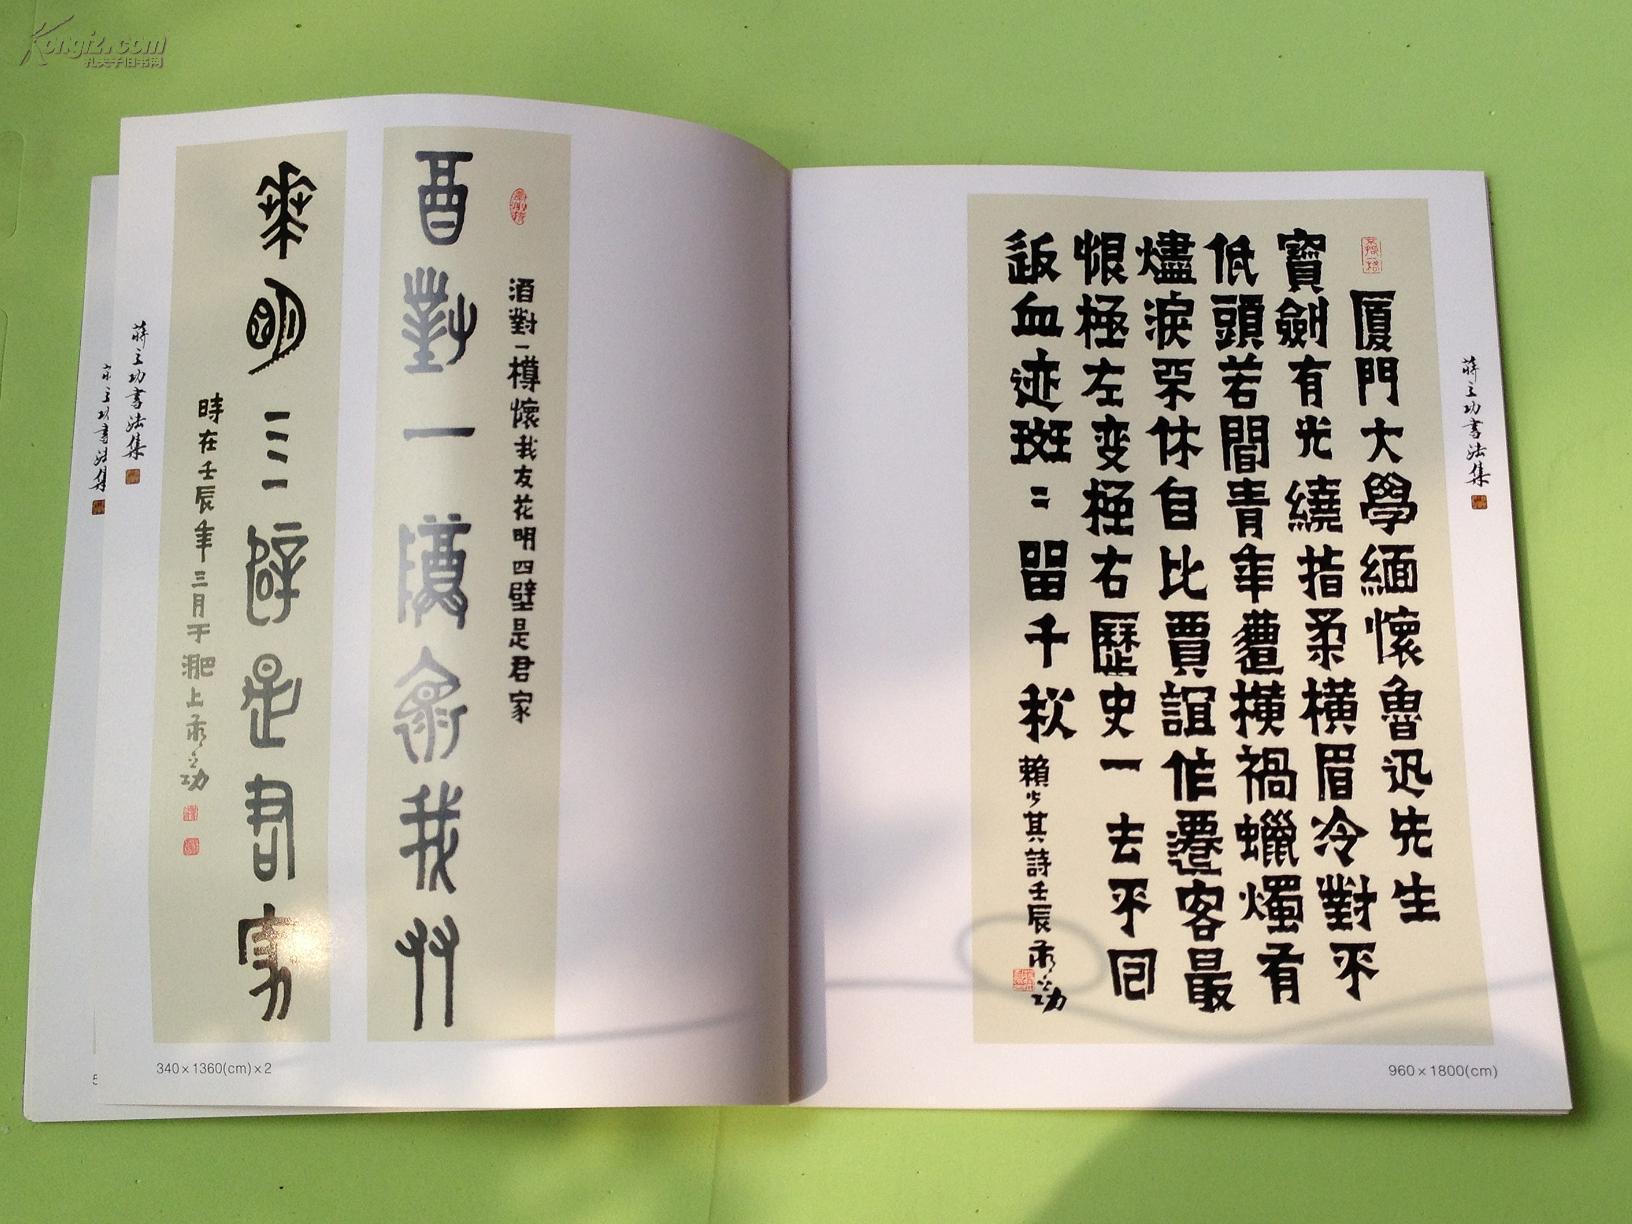 Kongfz.com
孔夫子旧书网
蔣立功書法集
酒對一樽懷我友花明四壁是君家
酉對一樽懷我友
華明三一辟是君家
時在壬辰年三月于淝上蔣立功
340×1360(cm)×2
蔣立功書法集
厦門大學緬懷魯迅先生
寶劍有光繞指柔橫眉冷對平
低頭若間青年遭橫禍蠟燭有
燼淚不休自比賈誼作遷客最
恨極左变極右歷史一去不回
返血迹斑〻留千秋
賴少其詩壬辰蔣立功
960×1800(cm)